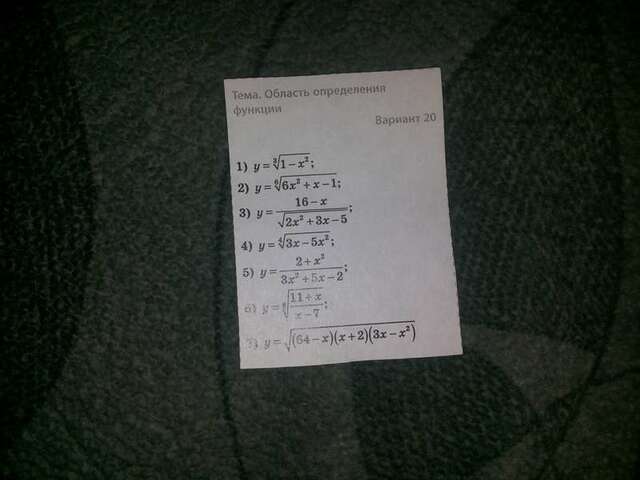 Тема. Область определения
функции
Вариант 20
1) y = ∛(1 − x²);
2) y = ⁶√(6x² + x − 1);
3) y = (16 − x)/√(2x² + 3x − 5);
4) y = ⁴√(3x − 5x²);
5) y = (2 + x²)/(3x² + 5x − 2);
6) y = ⁸√((11 + x)/(x − 7));
7) y = √((64 − x)(x + 2)(3x − x²))